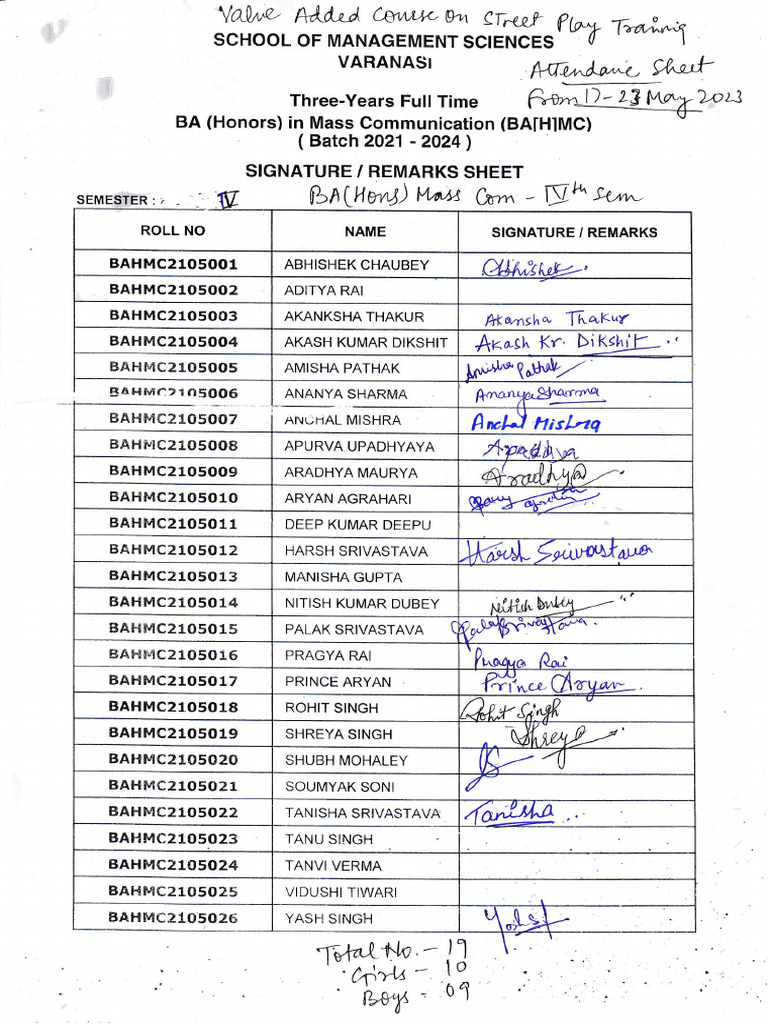 Value Added Course on Street Play Training
SCHOOL OF MANAGEMENT SCIENCES
VARANASI
Attendance Sheet
From 17-23 May 2023
Three-Years Full Time
BA (Honors) in Mass Communication (BA[H]MC)
( Batch 2021 - 2024 )
SIGNATURE / REMARKS SHEET
SEMESTER : IV BA(Hons) Mass Com - IVth sem
ROLL NO NAME SIGNATURE / REMARKS
BAHMC2105001 ABHISHEK CHAUBEY Abhishek
BAHMC2105002 ADITYA RAI
BAHMC2105003 AKANKSHA THAKUR Akansha Thakur
BAHMC2105004 AKASH KUMAR DIKSHIT Akash Kr. Dikshit
BAHMC2105005 AMISHA PATHAK Amisha Pathak
BAHMC2105006 ANANYA SHARMA Ananya Sharma
BAHMC2105007 ANCHAL MISHRA Anchal Mishra
BAHMC2105008 APURVA UPADHYAYA
BAHMC2105009 ARADHYA MAURYA Aradhya
BAHMC2105010 ARYAN AGRAHARI
BAHMC2105011 DEEP KUMAR DEEPU
BAHMC2105012 HARSH SRIVASTAVA Harsh Srivastava
BAHMC2105013 MANISHA GUPTA
BAHMC2105014 NITISH KUMAR DUBEY Nitish Dubey
BAHMC2105015 PALAK SRIVASTAVA Palak Srivastava
BAHMC2105016 PRAGYA RAI Pragya Rai
BAHMC2105017 PRINCE ARYAN Prince Aryan
BAHMC2105018 ROHIT SINGH Rohit Singh
BAHMC2105019 SHREYA SINGH Shreya
BAHMC2105020 SHUBH MOHALEY
BAHMC2105021 SOUMYAK SONI
BAHMC2105022 TANISHA SRIVASTAVA Tanisha
BAHMC2105023 TANU SINGH
BAHMC2105024 TANVI VERMA
BAHMC2105025 VIDUSHI TIWARI
BAHMC2105026 YASH SINGH Yash S
Total No. - 19
Girls - 10
Boys - 09